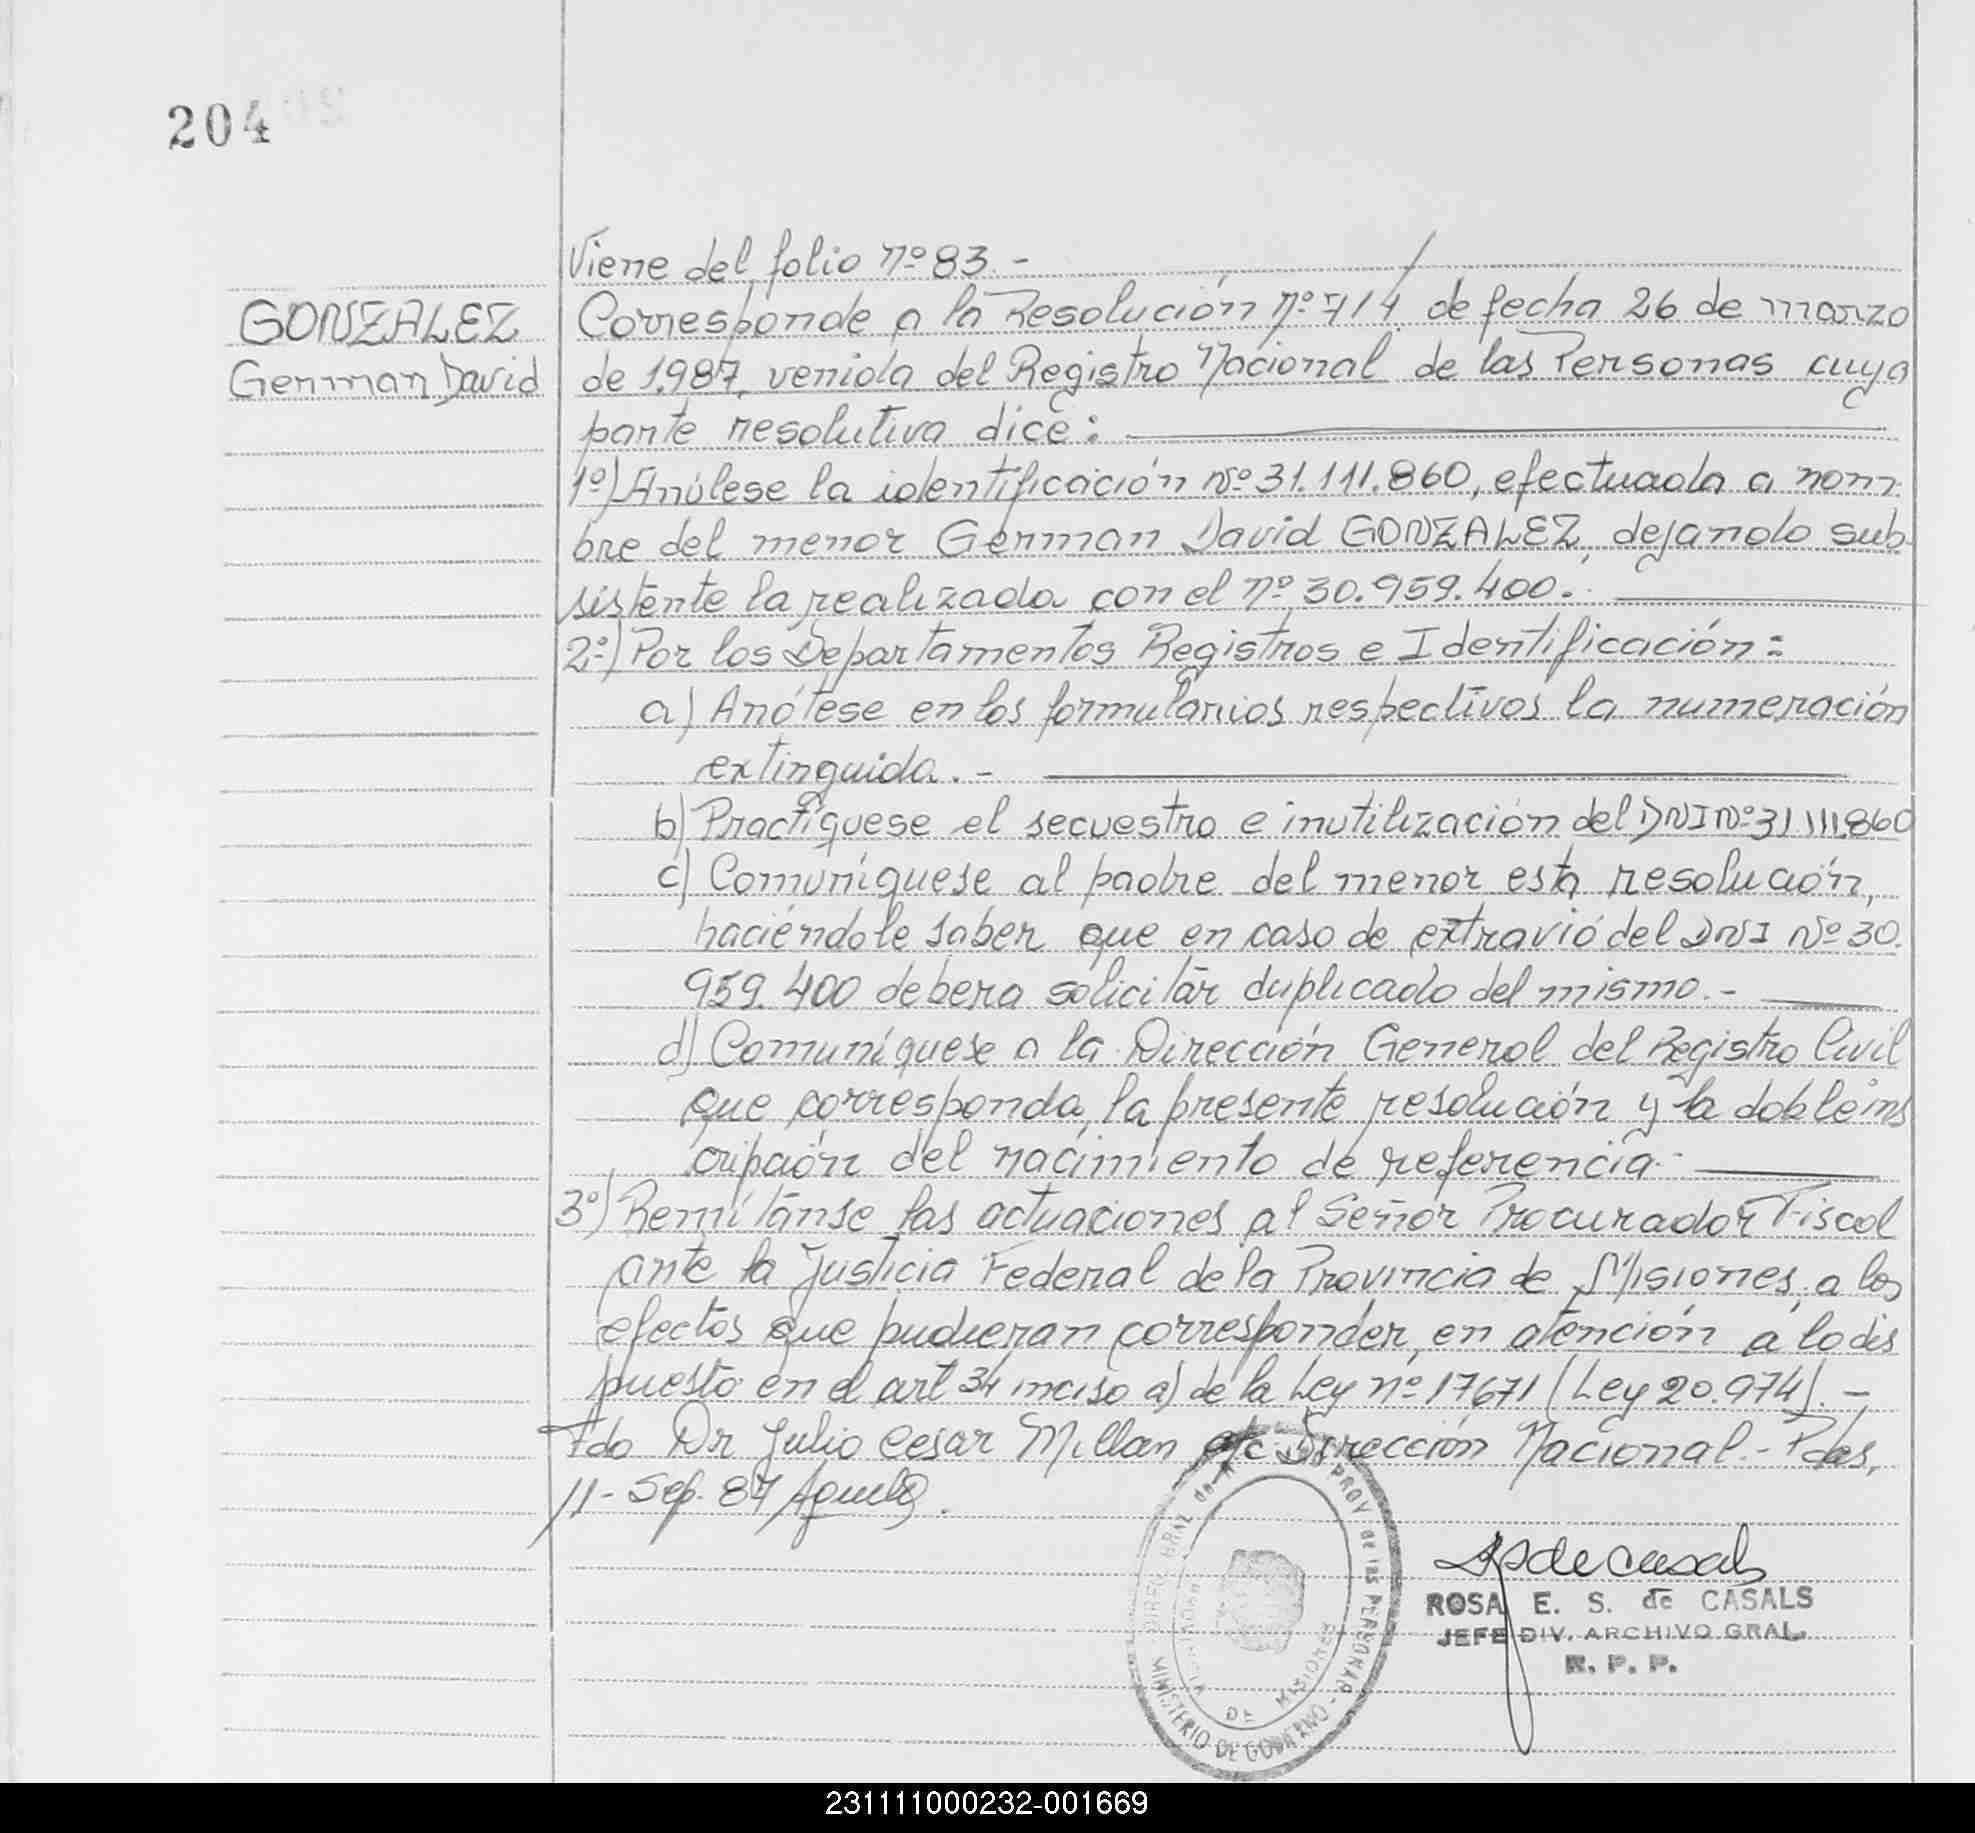 204
Viene del folio nº 83.-
GONZALEZ
German David
Corresponde a la Resolución nº 714 de fecha 26 de marzo
de 1.987, venida del Registro Nacional de las Personas cuya
parte resolutiva dice:
1º) Anúlese la identificación Nº 31.111.860, efectuada a nom-
bre del menor German David GONZALEZ, dejando sub-
sistente la realizada con el nº 30.959.400.-
2º) Por los Departamentos Registros e Identificación:
a) Anótese en los formularios respectivos la numeración
extinguida.-
b) Practíquese el secuestro e inutilización del DNI Nº 31.111.860
c) Comuníquese al padre del menor esta resolución,
haciéndole saber que en caso de extravió del DNI Nº 30.
959.400 debera solicitar duplicado del mismo.-
d) Comuníquese a la Dirección General del Registro Civil
que corresponda, la presente resolución y la doble ins
cripción del nacimiento de referencia.-
3º) Remítanse las actuaciones al Señor Procurador Fiscal
ante la Justicia Federal de la Provincia de Misiones, a los
efectos que pudieran corresponder, en atención a lo dis
puesto en el art 34 inciso a) de la Ley nº 17671 (Ley 20.974).-
Fdo Dr Julio Cesar Millan a/c Dirección Nacional.- Pdas,
11- Sep. 87
DE MISIONES
MINISTERIO DE GOBIERNO
PROV de las PERSONAS
de Casals
ROSA E. S. de CASALS
JEFE DIV. ARCHIVO GRAL.
R. P. P.
231111000232-001669